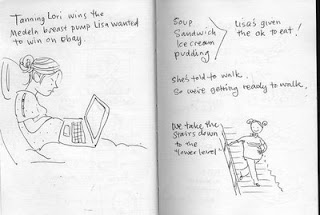 Tanning Lori wins the
Medela breast pump Lisa wanted
to win on ebay.
Soup
Sandwich
Ice cream
pudding
Lisa's given
the ok to eat!
She's told to walk,
So we're getting ready to walk.
We take the
stairs down
to the
"lower level"